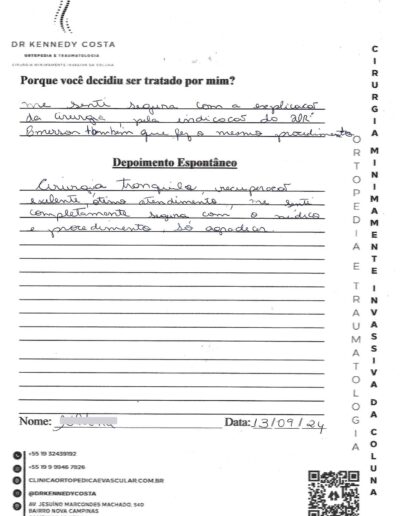 DR KENNEDY COSTA
ORTOPEDIA E TRAUMATOLOGIA
CIRURGIA MINIMAMENTE INVASIVA DA COLUNA
Porque você decidiu ser tratado por mim?
me senti segura com a explicacao
da cirurgia pela indicacao do
Emerson também que fez o mesmo procedimento
Depoimento Espontâneo
Cirurgia tranquila, recuperacao
exelente, ótimo atendimento, me senti
completamente segura com o médico
e procedimento, só agradecer.
Nome:
Data: 13/09/24
+55 19 32439192
+55 19 9 9946 7926
CLINICAORTOPEDICAEVASCULAR.COM.BR
@DRKENNEDYCOSTA
AV. JESUÍNO MARCONDES MACHADO, 540
BAIRRO NOVA CAMPINAS
ORTOPEDIA E TRAUMATOLOGIA
CIRURGIA MINIMAMENTE INVASSIVA DA COLUNA